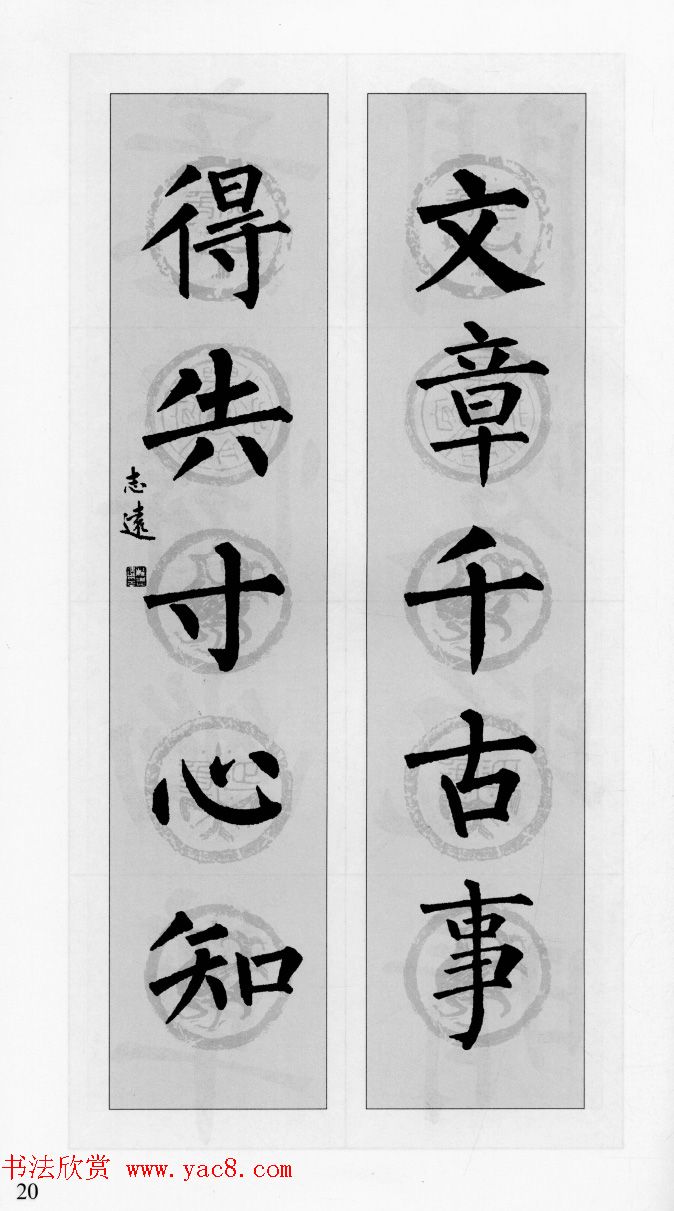 文章千古事
得失寸心知
志遠
书法欣赏 www.yac8.com
20